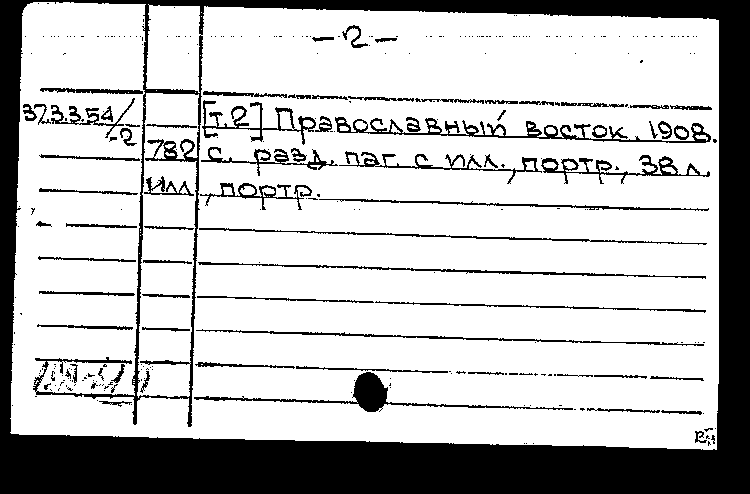 -2-
37.3.3.54/-2 [т.2] Православный восток. 1908.
782 с. разд. паг. с илл., портр., 38 л.
илл., портр.